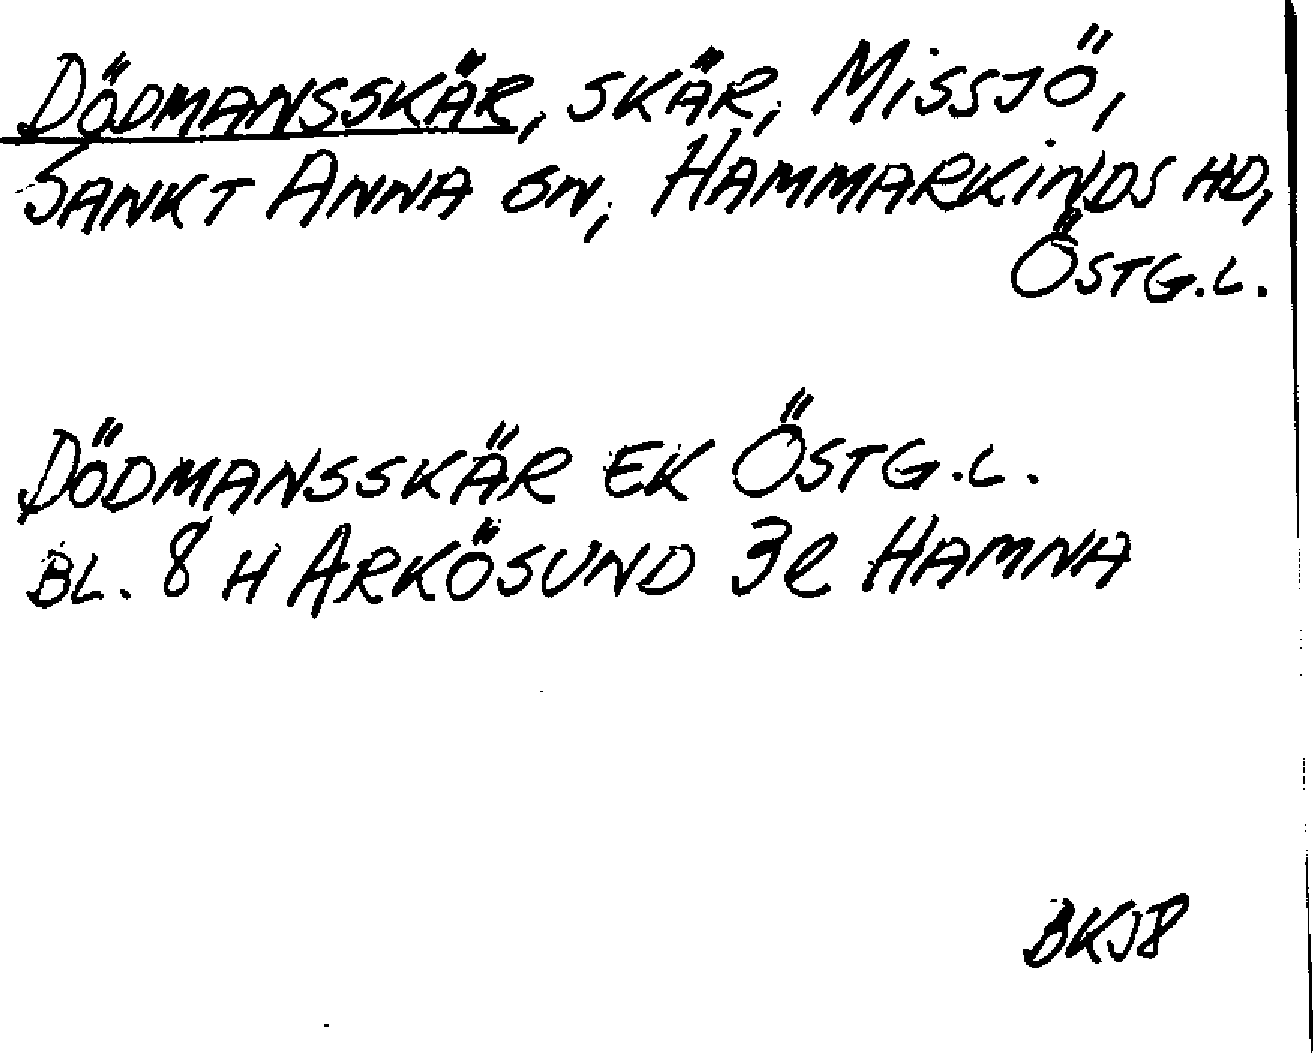 DÖDMANSSKÄR, SKÄR, MISSJÖ,
SANKT ANNA SN, HAMMARKINDS HD,
ÖSTG.L.
DÖDMANSSKÄR EK ÖSTG.L.
BL. 8 H ARKÖSUND 3e HAMNA
BKJ8